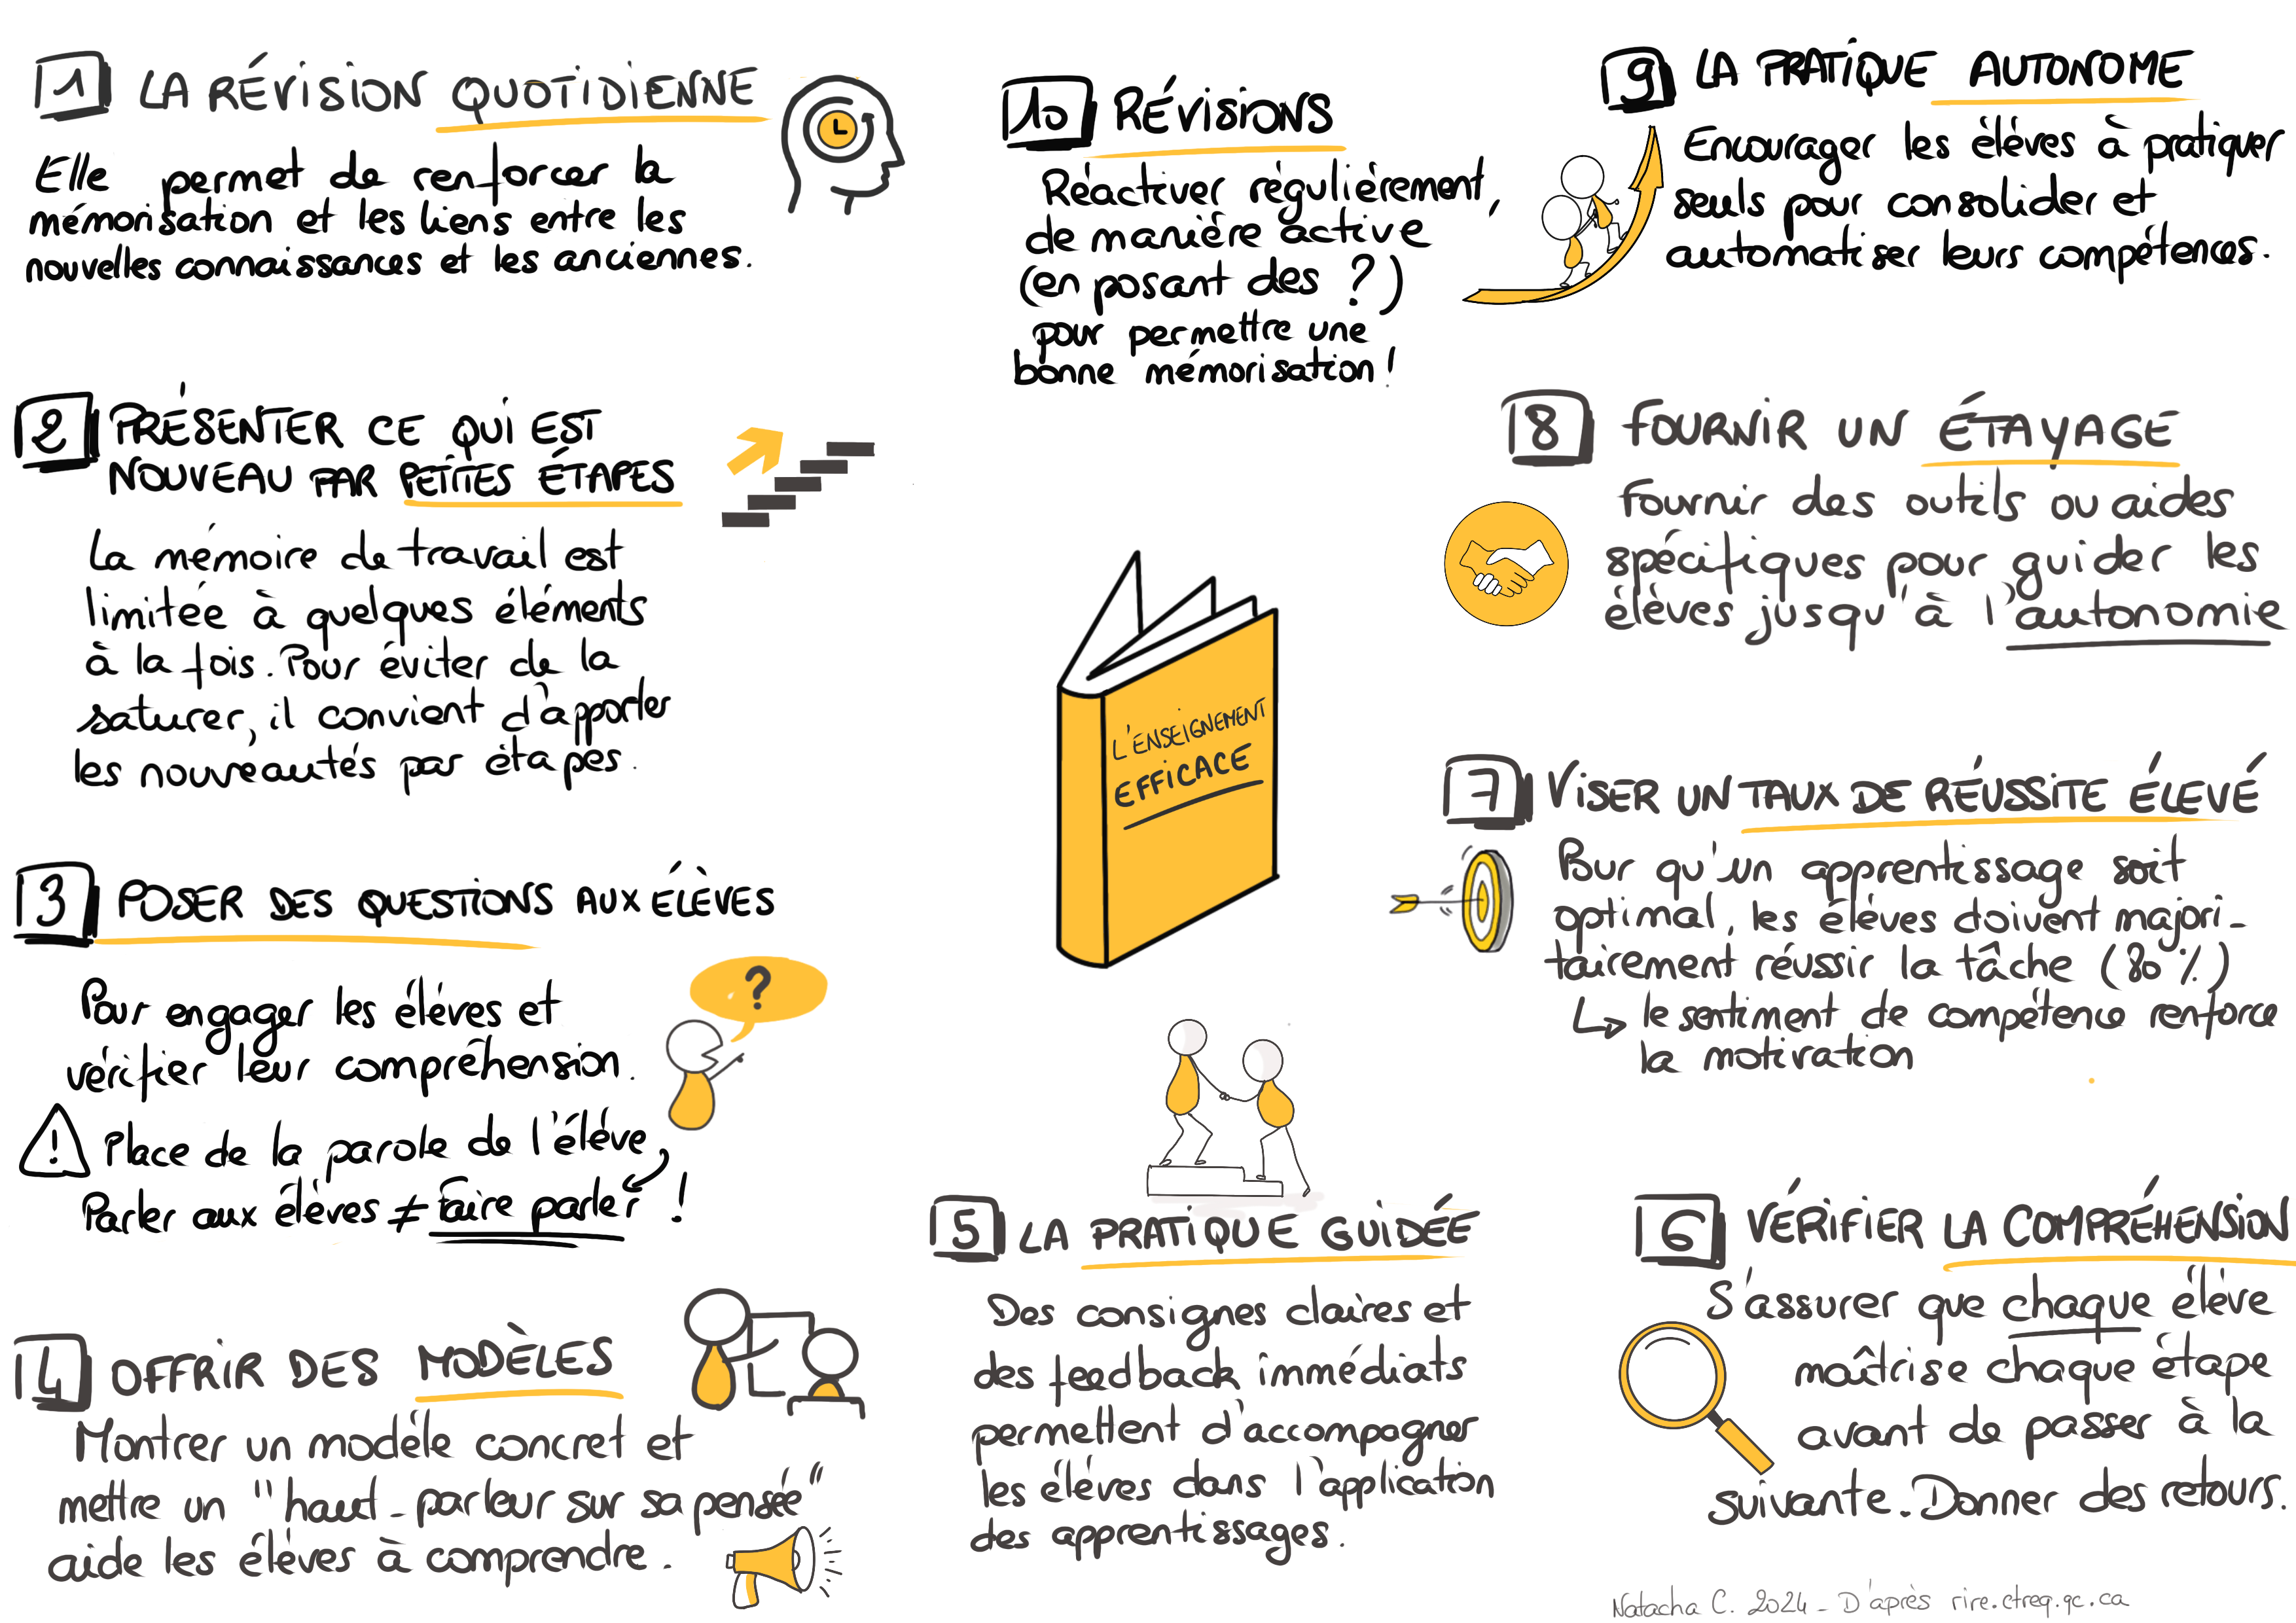 1 LA RÉVISION QUOTIDIENNE
Elle permet de renforcer la
mémorisation et les liens entre les
nouvelles connaissances et les anciennes.
2 PRÉSENTER CE QUI EST
NOUVEAU PAR PETITES ÉTAPES
La mémoire de travail est
limitée à quelques éléments
à la fois. Pour éviter de la
saturer, il convient d'apporter
les nouveautés par étapes.
3 POSER DES QUESTIONS AUX ÉLÈVES
Pour engager les élèves et
vérifier leur compréhension.
?
! Place de la parole de l'élève
Parler aux élèves ≠ faire parler !
4 OFFRIR DES MODÈLES
Montrer un modèle concret et
mettre un "haut-parleur sur sa pensée"
aide les élèves à comprendre.
L'ENSEIGNEMENT
EFFICACE
5 LA PRATIQUE GUIDÉE
Des consignes claires et
des feedback immédiats
permettent d'accompagner
les élèves dans l'application
des apprentissages.
6 VÉRIFIER LA COMPRÉHENSION
S'assurer que chaque élève
maîtrise chaque étape
avant de passer à la
suivante. Donner des retours.
7 VISER UN TAUX DE RÉUSSITE ÉLEVÉ
Pour qu'un apprentissage soit
optimal, les élèves doivent majori-
tairement réussir la tâche (80 %)
↳ le sentiment de compétence renforce
la motivation
8 FOURNIR UN ÉTAYAGE
Fournir des outils ou aides
spécifiques pour guider les
élèves jusqu'à l'autonomie
9 LA PRATIQUE AUTONOME
Encourager les élèves à pratiquer
seuls pour consolider et
automatiser leurs compétences.
10 RÉVISIONS
Réactiver régulièrement,
de manière active
(en posant des ?)
pour permettre une
bonne mémorisation !
Natacha C. 2024 - D'après rire.ctreq.qc.ca